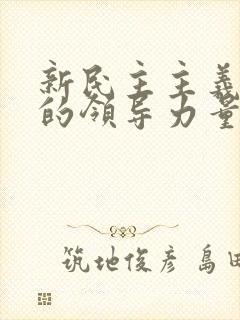 新民主主義
的領导力量
筑地俊彦 島田